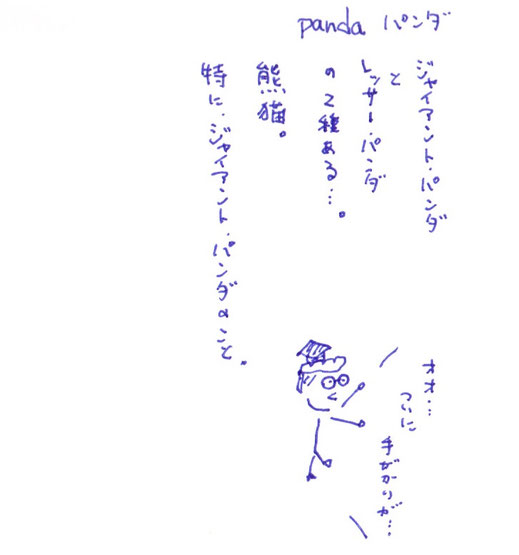 panda パンダ
ジャイアント・パンダ
と
レッサー・パンダ
の2種ある…。
熊猫。
特に・ジャイアント・パンダのこと。
オオ…
ついに
手がかりが…